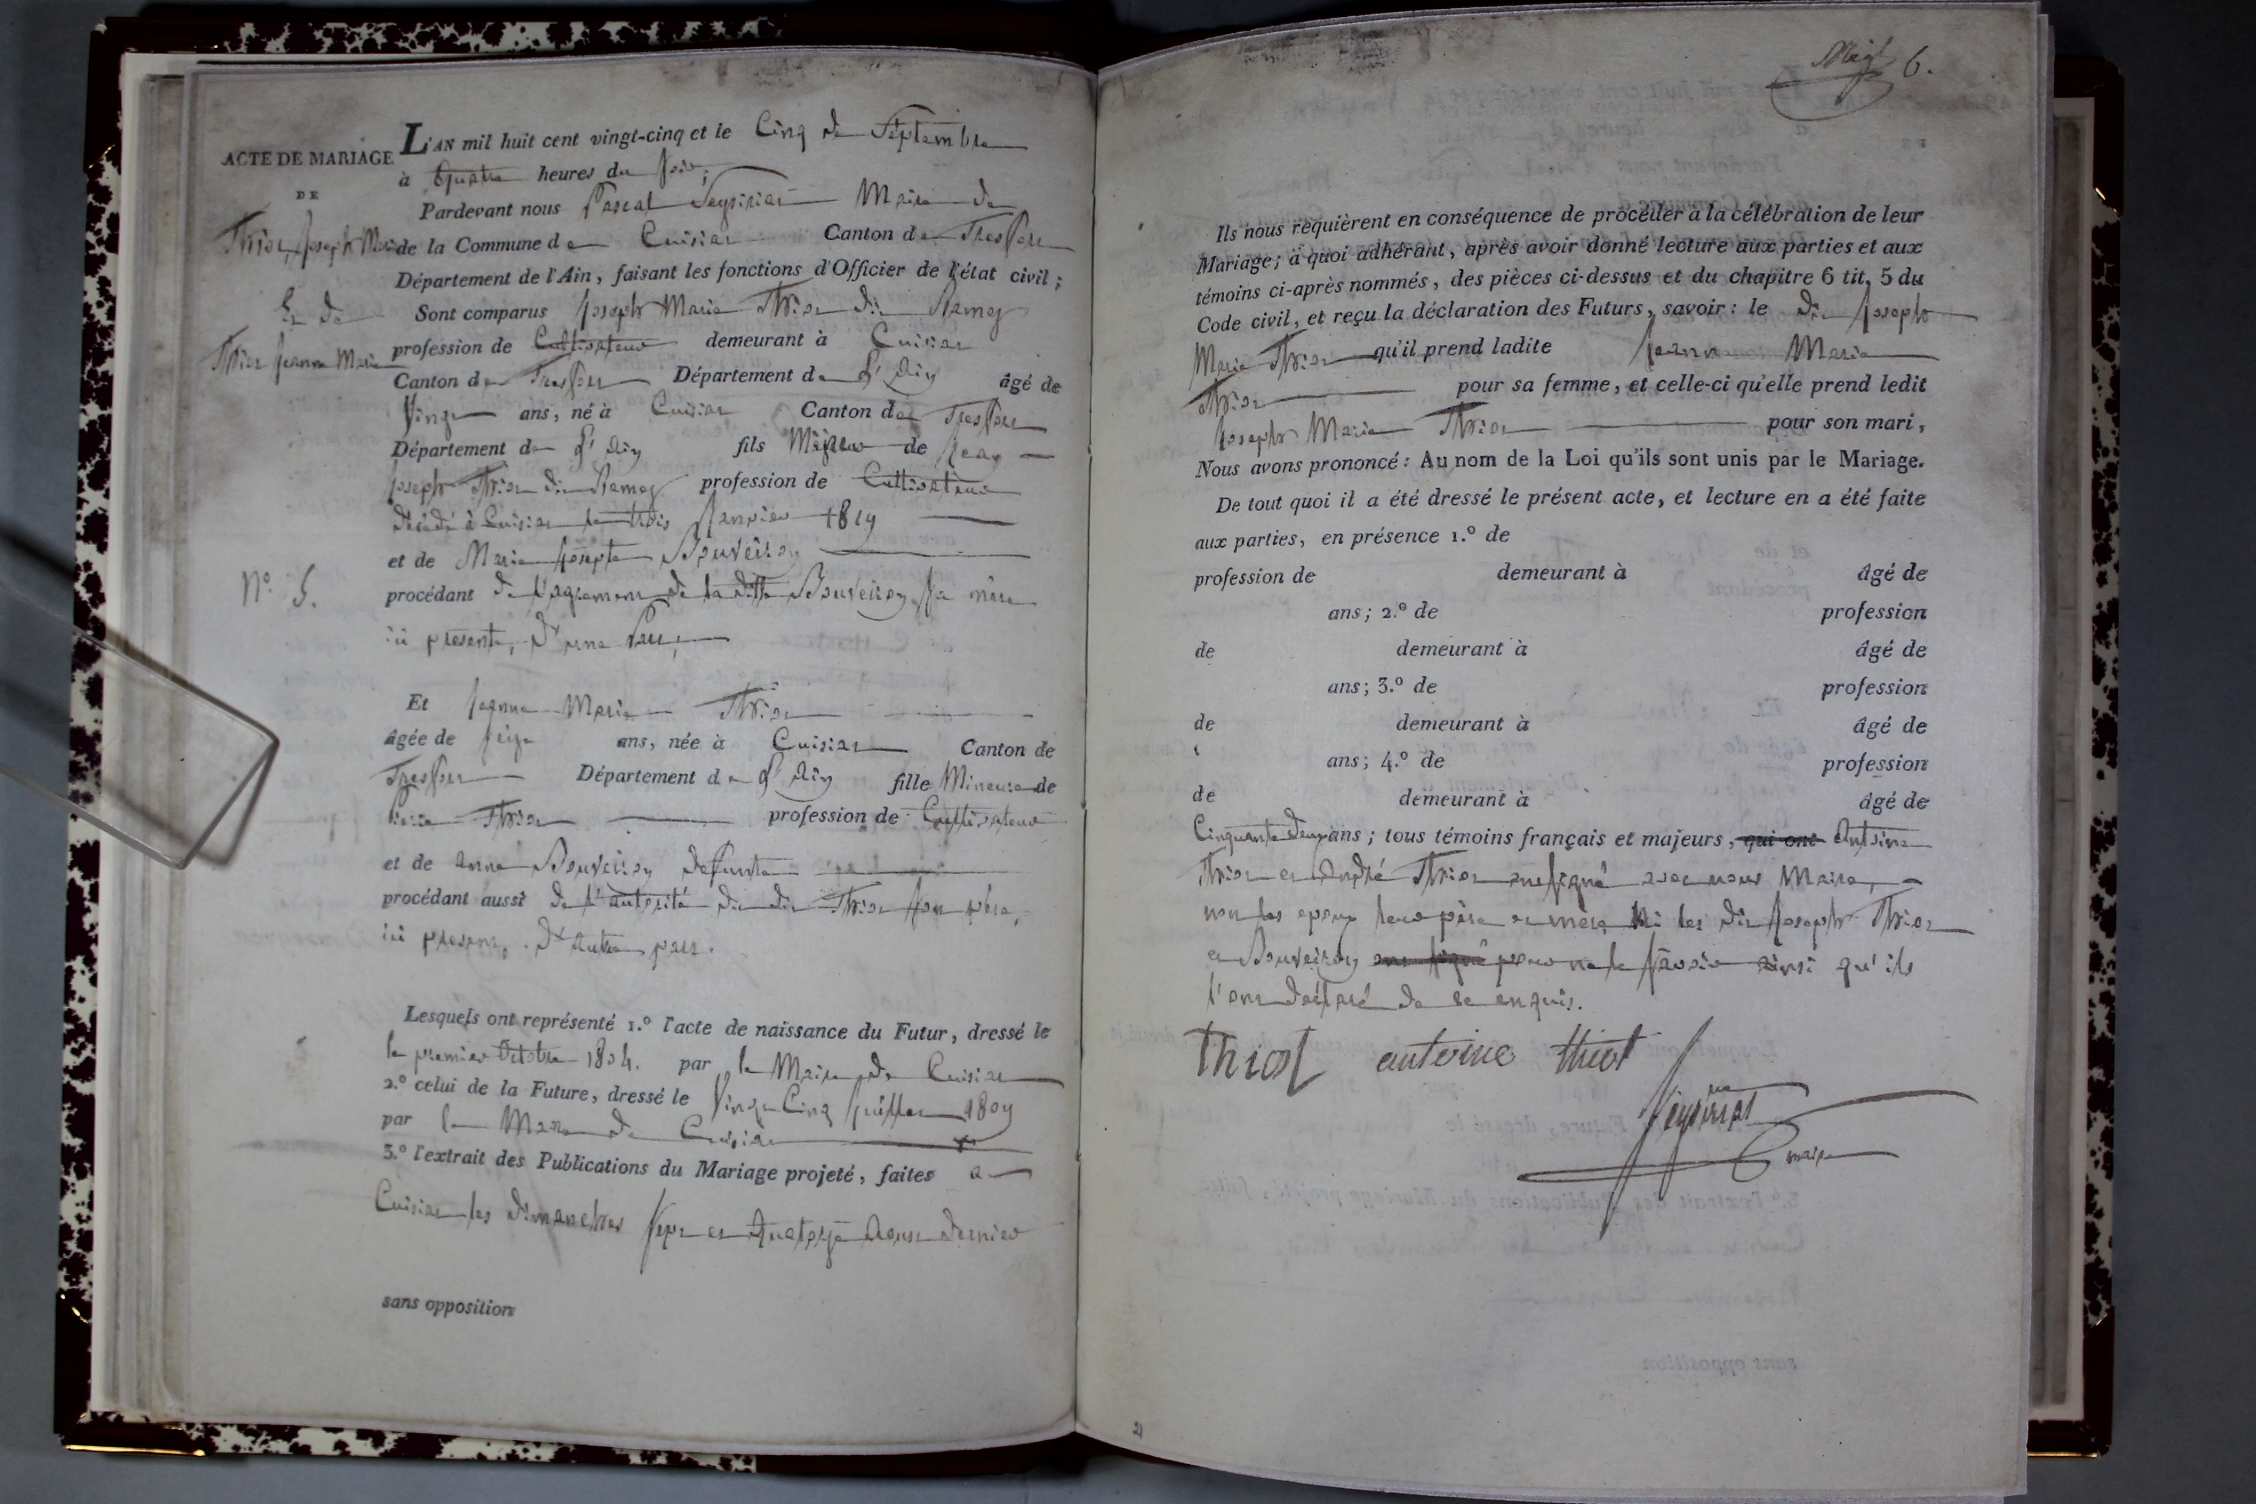 ACTE DE MARIAGE
DE
Thiot Joseph Marie
Et de
Thiot Jeanne Marie
N.° 5.
L'AN mil huit cent vingt-cinq et le Cinq de Septembre
à Quatre heures du soir,
Pardevant nous Pascal Maire de
de la Commune de Cuisiat Canton de Treffort
Département de l'Ain, faisant les fonctions d'Officier de l'état civil;
Sont comparus Joseph Marie Thiot dit Ramey
profession de Cultivateur demeurant à Cuisiat
Canton de Treffort Département de l'Ain âgé de
Vingt ans, né à Cuisiat Canton de Treffort
Département de l'Ain fils Mineur de Jean
Joseph Thiot dit Ramey profession de Cultivateur
décédé à Cuisiat le trois Janvier 1819
et de Marie Josepte Bouveiron
procédant de l'agrement de la ditte Bouveiron sa mère
ici presente, d'une Part,
Et Jeanne Marie Thiot
âgée de seize ans, née à Cuisiat Canton de
Treffort Département de l'Ain fille Mineure de
Pierre Thiot profession de Cultivateur
et de anne Bouveiron defunte
procédant aussi de l'autorité du dit Thiot son père,
ici présent, d'autre part.
Lesquels ont représenté 1.° l'acte de naissance du Futur, dressé le
le premier Octobre 1804. par le Maire de Cuisiat
2.° celui de la Future, dressé le Vingt Cinq Juillet 1809
par le Maire de Cuisiat
3.° l'extrait des Publications du Mariage projeté, faites a
Cuisiat les dimanches sept et Quatorze Aoust dernier
sans opposition
6.
Ils nous requièrent en conséquence de procéder à la célébration de leur
Mariage; à quoi adhérant, après avoir donné lecture aux parties et aux
témoins ci-après nommés, des pièces ci-dessus et du chapitre 6 tit. 5 du
Code civil, et reçu la déclaration des Futurs, savoir: le dit Joseph
Marie Thiot qu'il prend ladite Jeanne Marie
Thiot pour sa femme, et celle-ci qu'elle prend ledit
Joseph Marie Thiot pour son mari,
Nous avons prononcé: Au nom de la Loi qu'ils sont unis par le Mariage.
De tout quoi il a été dressé le présent acte, et lecture en a été faite
aux parties, en présence 1.° de
profession de demeurant à âgé de
ans; 2.° de profession
de demeurant à âgé de
ans; 3.° de profession
de demeurant à âgé de
ans; 4.° de profession
de demeurant à âgé de
Cinquante deux ans; tous témoins français et majeurs, qui ont Antoine
Thiot et André Thiot ont signé avec nous Maire,
non les epoux leur père et mère ni les dit Joseph Thiot
et Bouveiron ont signé pour ne le savoir ainsi qu'ils
l'ont déclaré de ce enquis.
thiot antoine thiot
maire
2